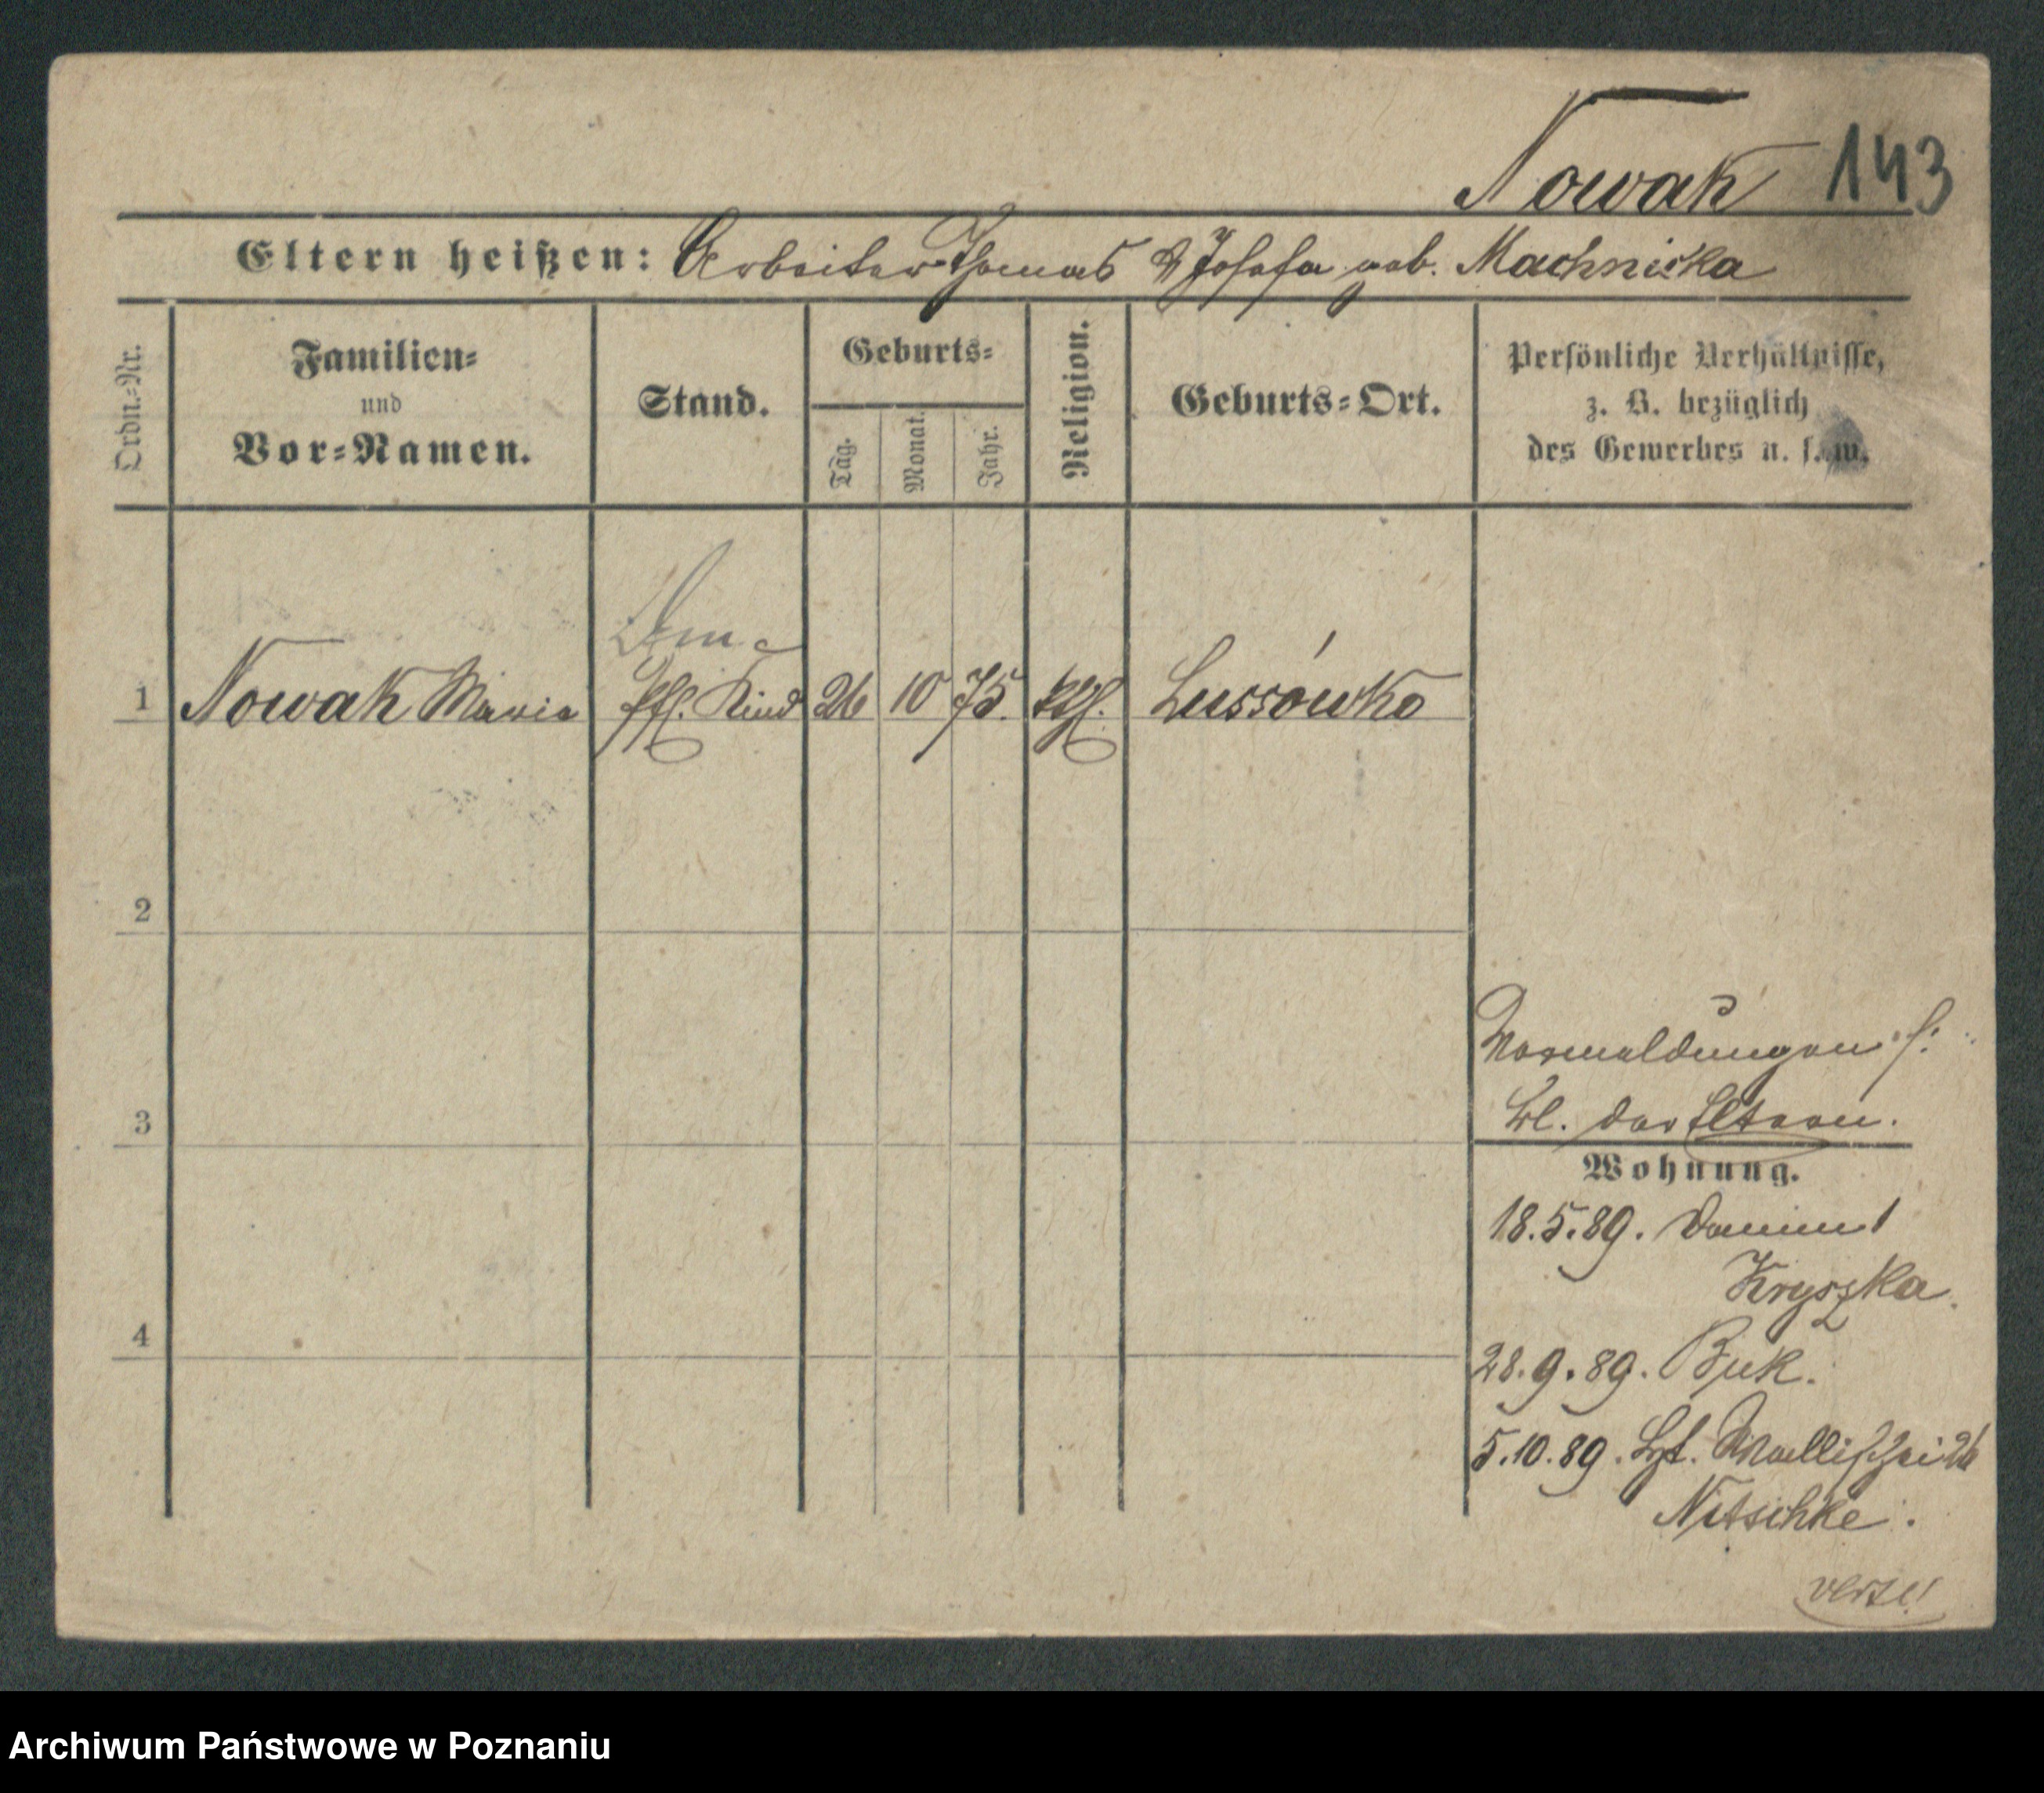 Nowak 143
Eltern heißen: Arbeiter Thomas & Josefa geb. Machnicka
Ordn.-Nr.
Familien-
und
Vor-Namen.
Stand.
Geburts-
Tag.
Monat.
Jahr.
Religion.
Geburts-Ort.
Persönliche Verhältnisse,
z. B. bezüglich
des Gewerbes u. s. w.
1 Nowak Maria Kind 26 10 75. kath. Lussówko
2
3
4
Vormeldungen s.
Bl. der Eltern.
Wohnung.
18.5.89.
Kryszka.
28.9.89. Buk.
5.10.89. Wallischei 26
Nitschke.
verte!
Archiwum Państwowe w Poznaniu